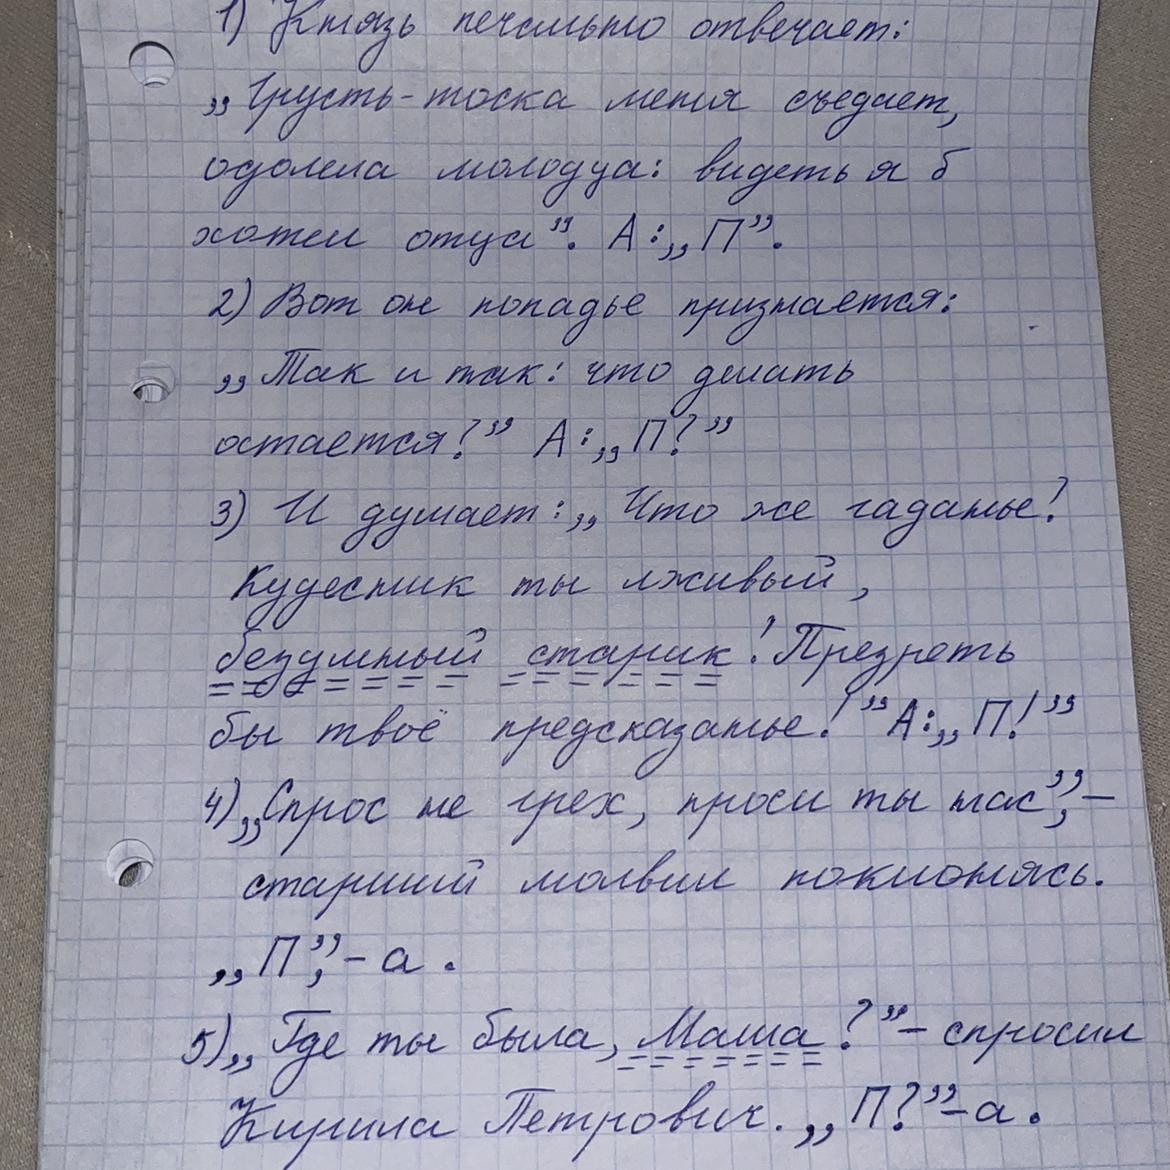 1) Князь печально отвечает:
„Грусть-тоска меня съедает,
одолела молодца: видеть я б
хотел отца”. А:„П”.
2) Вот он попадье признается:
„Так и так: что делать
остается?” А:„П?”
3) И думает:„Что же гаданье!
Кудесник ты лживый,
безумный старик! Презреть
бы твоё предсказанье!” А:„П!”
4)„Спрос не грех, проси ты нас”,–
старший молвил поклонясь.
„П”,–а.
5)„Где ты была, Маша?”–спросил
Кирила Петрович. „П?”–а.